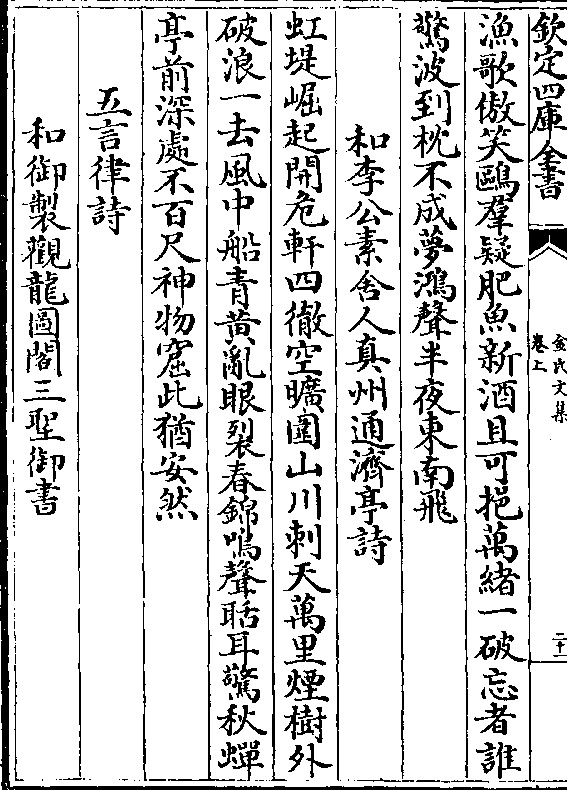 欽定四庫全書
金氏文集
卷上
二十一
漁歌傲笑鷗羣疑肥魚新酒且可挹萬緒一破忘者誰
驚波到枕不成夢鴻聲半夜東南飛
和李公素舍人真州通濟亭詩
虹堤崛起開危軒四徹空曠圍山川刺天萬里煙樹外
破浪一去風中船青黃亂眼裂春錦鳴聲聒耳驚秋蟬
亭前深處不百尺神物窟此猶安然
五言律詩
和御製觀龍圖閣三聖御書